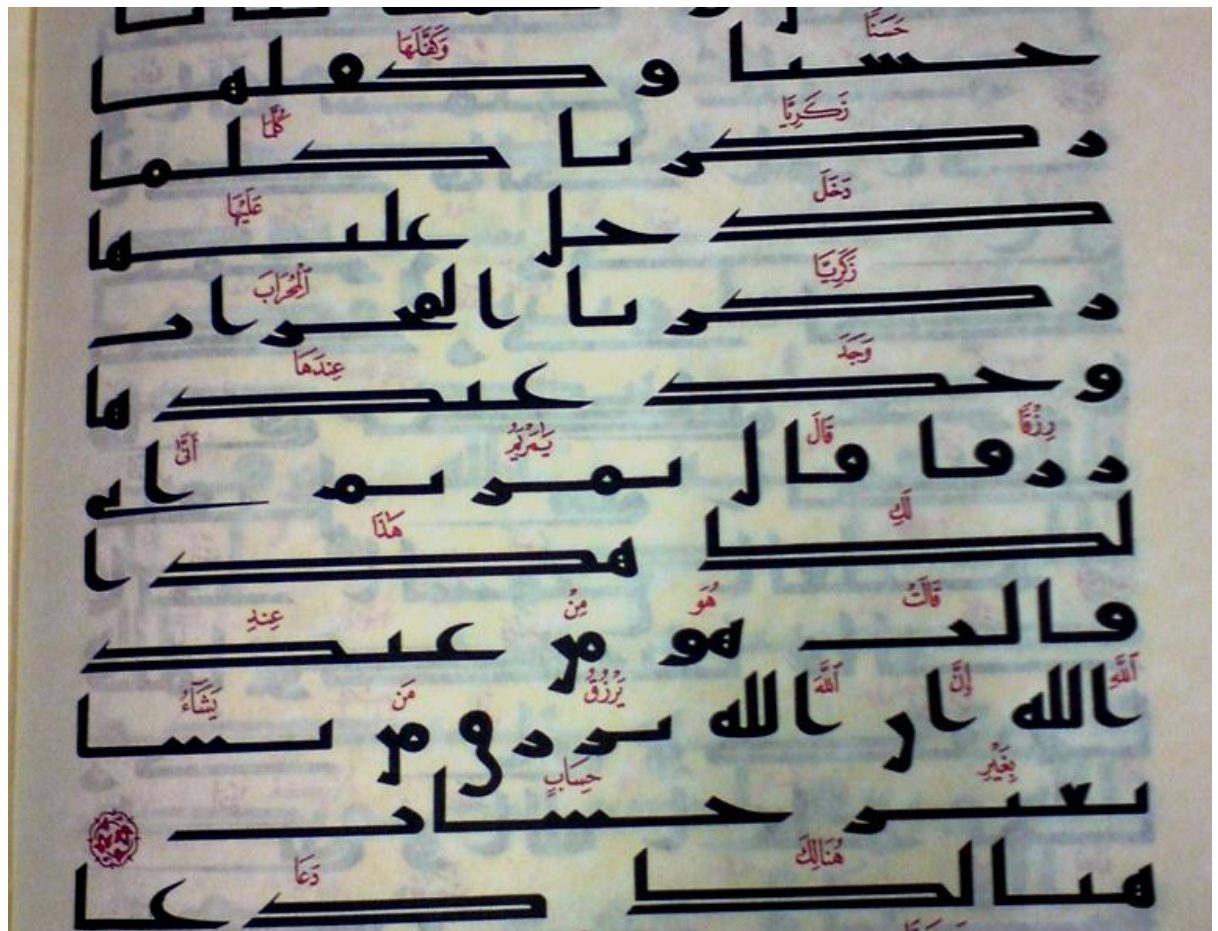 حَسَنًا وَكَفَّلَهَا
حسنا وكفلها
زَكَرِيَّا كُلَّمَا
زكريا كلما
دَخَلَ عَلَيْهَا
دخل عليها
زَكَرِيَّا ٱلْمِحْرَابَ
زكريا المحراب
وَجَدَ عِندَهَا
وجد عندها
رِزْقًا قَالَ يَٰمَرْيَمُ أَنَّىٰ
رزقا قال يمريم انى
لَكِ هَٰذَا
لك هذا
قَالَتْ هُوَ مِنْ عِندِ
قالت هو من عند
ٱللَّهِ إِنَّ ٱللَّهَ يَرْزُقُ مَن يَشَآءُ
الله ان الله يرزق من يشا
بِغَيْرِ حِسَابٍ
بغير حساب
هُنَالِكَ دَعَا
هنالك دعا